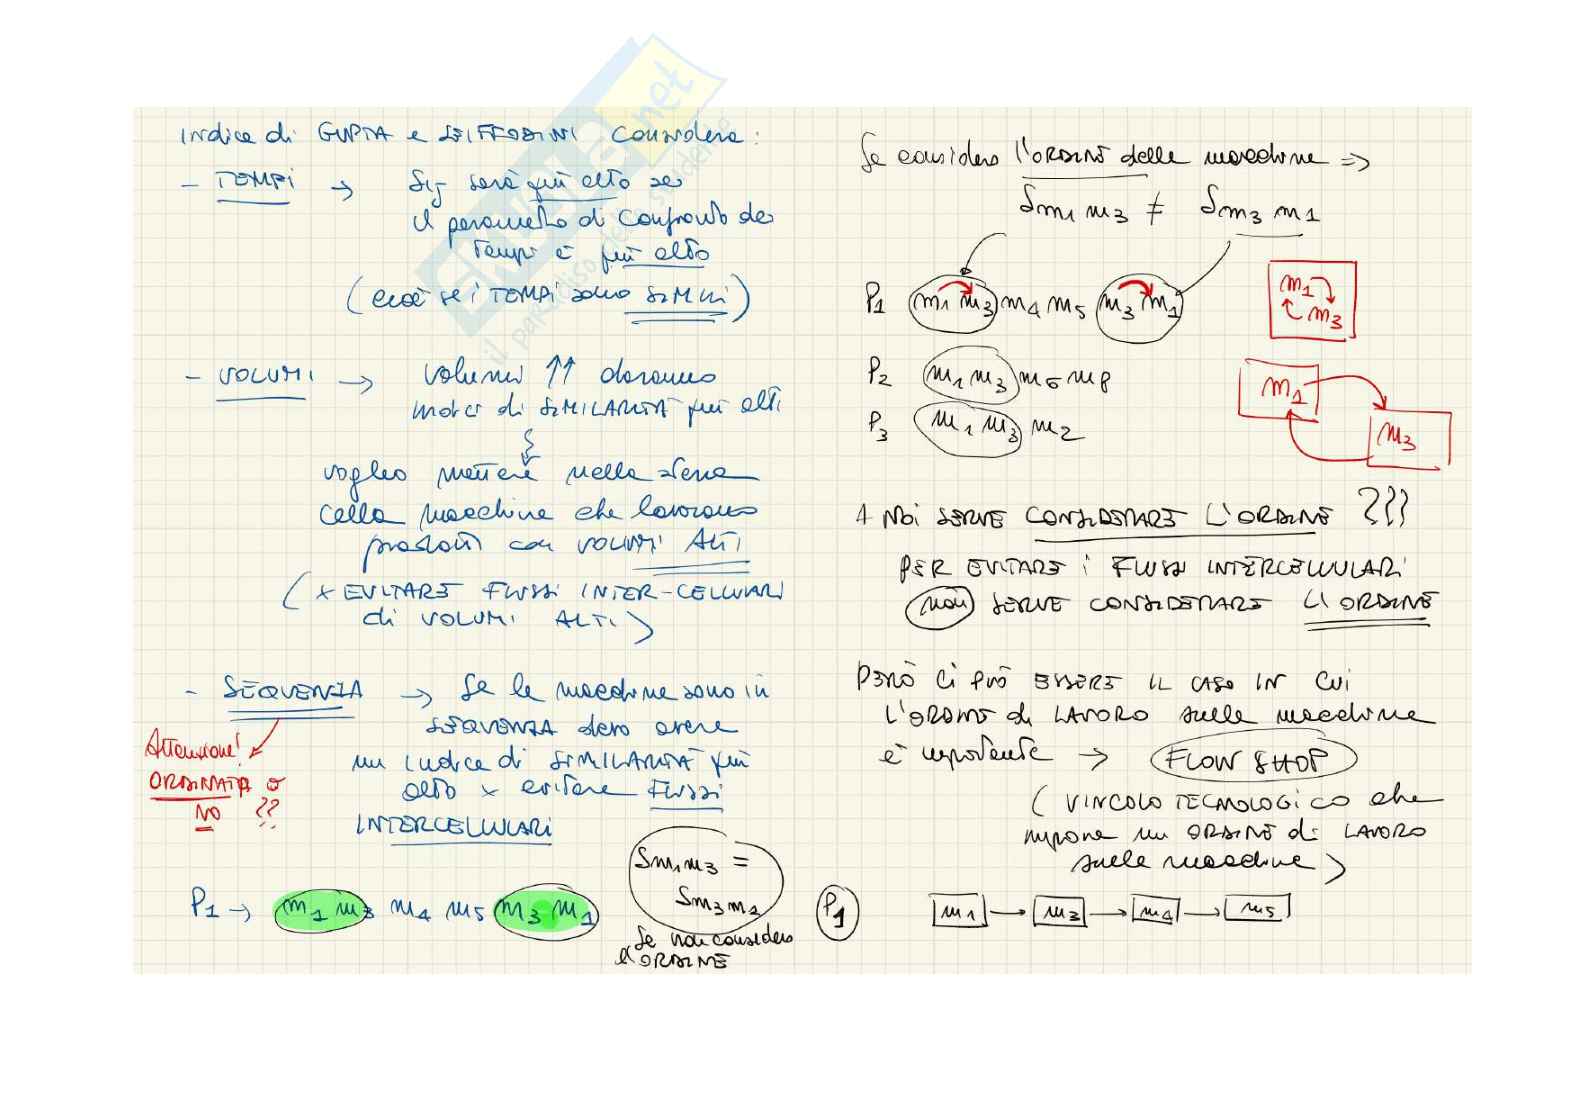 Indice di GUPTA e SEIFFODINI considera:
- TEMPI → Sij sarà più alto se
il parametro di confronto dei
tempi è più alto
(cioè se i TEMPI sono SIMILI)
- VOLUMI → volumi ↑↑ daranno
indici di SIMILARITÀ più alti
voglio mettere nella stessa
cella macchine che lavorano
prodotti con VOLUMI ALTI
(x EVITARE FLUSSI INTER-CELLULARI
di VOLUMI ALTI)
- SEQUENZA → Se le macchine sono in
SEQUENZA devo avere
un indice di SIMILARITÀ più
alto x evitare FLUSSI
INTERCELLULARI
Attenzione!
ORDINATA o
NO ??
P1 → m1 m3 m4 m5 m3 m1
Sm1m3 =
Sm3m1
Se non considero
l'ORDINE
Se considero l'ORDINE delle macchine ⇒
Sm1m3 ≠ Sm3m1
P1 m1 m3 m4 m5 m3 m1
m1
m3
P2 m1 m3 m6 m8
m1
P3 m1 m3 m2
m3
A NOI SERVE CONSIDERARE L'ORDINE ???
PER EVITARE i FLUSSI INTERCELLULARI
non SERVE CONSIDERARE L'ORDINE
PERÒ CI PUÒ ESSERE IL CASO IN CUI
L'ORDINE di LAVORO sulle macchine
è importante → FLOW SHOP
(VINCOLO TECNOLOGICO che
impone un ORDINE di LAVORO
sulle macchine)
P1 m1 → m3 → m4 → m5
il paradiso dello studente